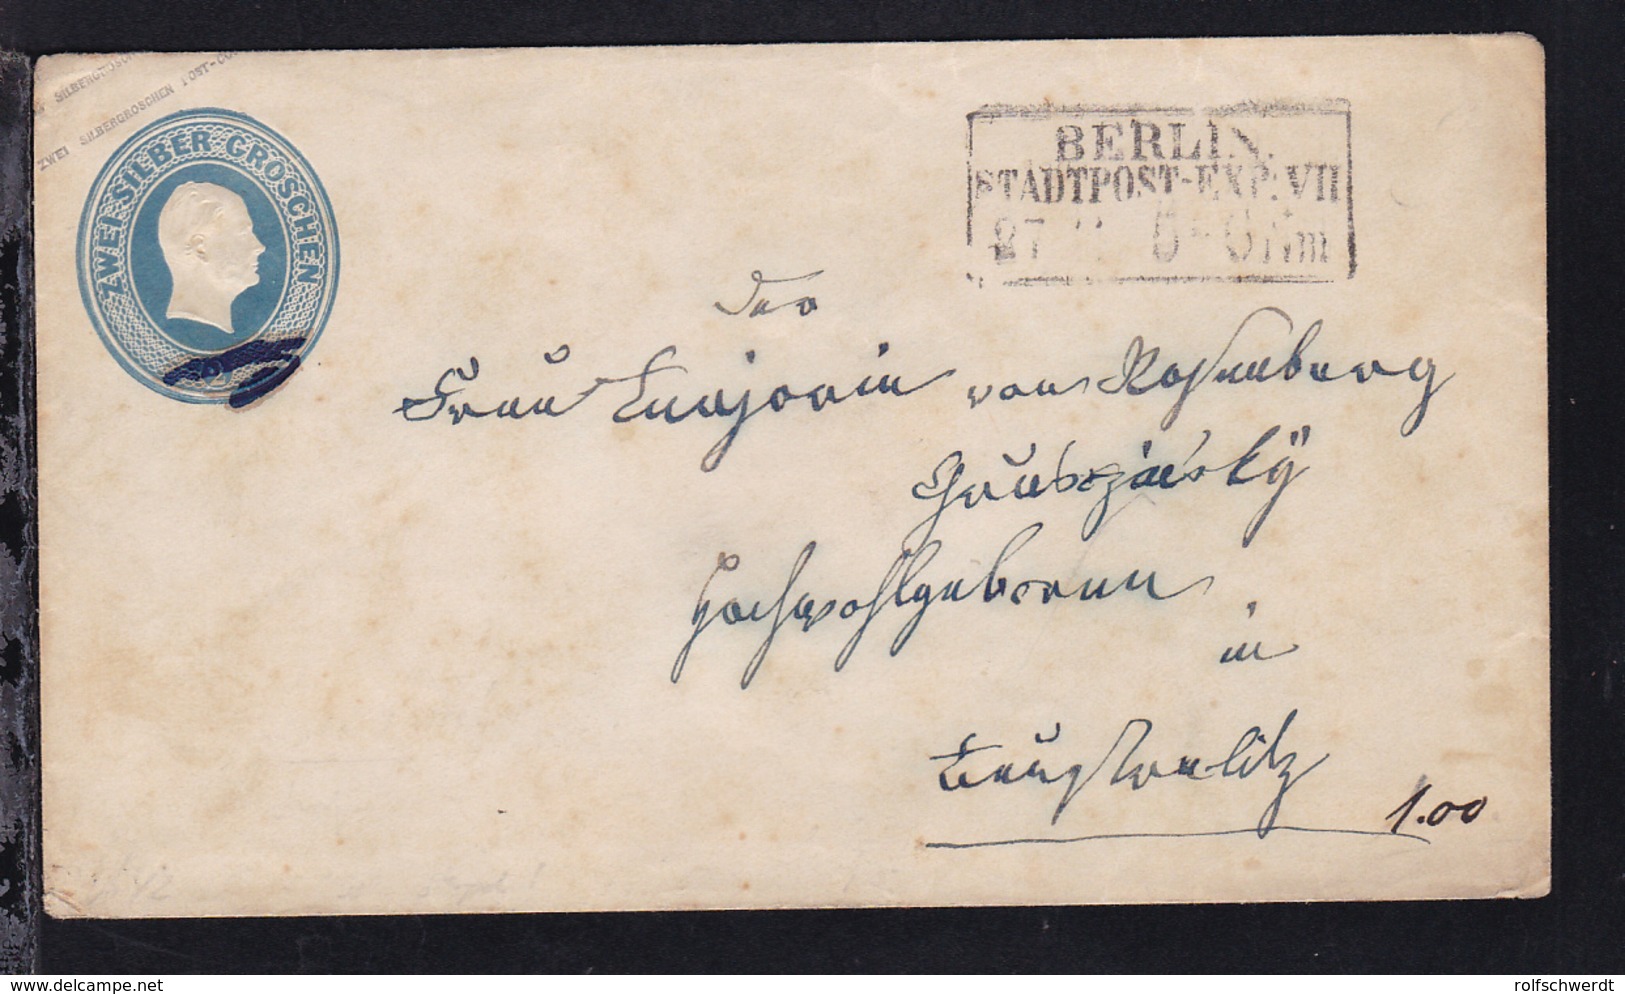 ZWEI SILBERGROSCHEN POST-CO
SILBERGROSCH
ZWEI SILBER GROSCHEN
2
BERLIN.
STADTPOST-EXP: VII
27 11 5-6 Nm
Der
Frau Majorin von Rosenberg
Gruszczinsky
Hochwohlgeboren
in
Neustrelitz
1.00
delcampe.net
rolfschwerdt